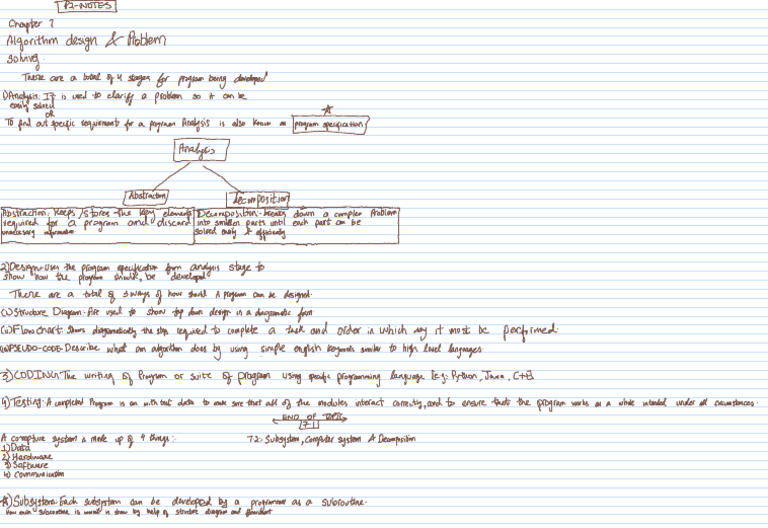 P2-NOTES
Chapter 7
Algorithm design & Problem
solving.
There are a total of 4 stages for program being developed
1)Analysis: It is used to clarify a problem so it can be
easily solved
or
To find out specific requirements for a program Analysis is also known as program specification
Analysis
Abstraction
decomposition
Abstraction: Keeps/stores the key elements
required for a program and discard
unnecessary information
Decomposition- breaks down a complex Problem
into smaller parts until each part can be
solved easily & efficiently
2)Design-Uses the program specification from analysis stage to
show how the program should be developed
There are a total of 3 ways of how should A program can be designed.
(i)Structure Diagram: Are used to show top down design in a diagramatic form
(ii)Flowchart: Shows diagramatically the steps required to complete a task and order in which they it must be performed.
(iii)PSEUDO-CODE-Describe what an algorithm does by using simple english keywords similar to high level languages.
3)CODING: The writing of Program or suite of program using specific programming language [eg: Python, Java, C++]
4)Testing: A completed Program is run with test data to make sure that all of the modules interact correctly, and to ensure that the program works as a whole intended under all circumstances.
END OF TOPIC
7.1
A computure system is made up of 4 things:-
7.2: Subsystem, Computer system & Decomposition
1)Data
2)Hardware
3)Software
4) communication
A)Subsystem: Each subsystem can be developed by a programmer as a subroutine.
How each subroutine is works is show by help of structure diagram and flowchart